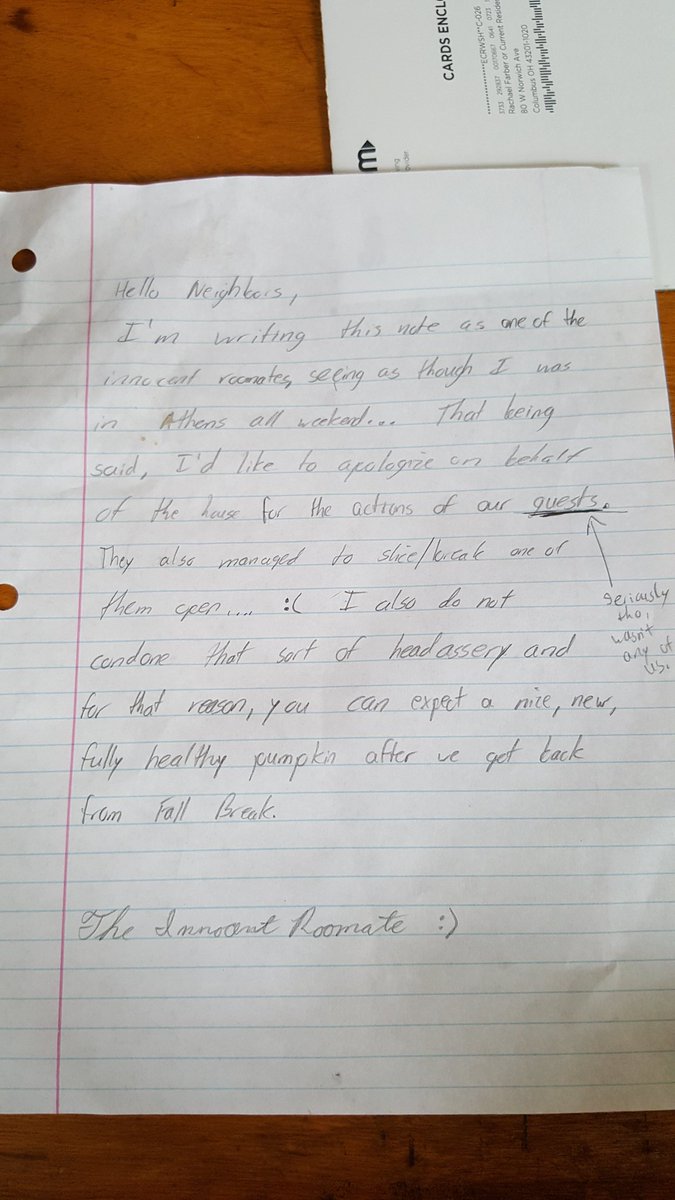 CARDS ENCL
**************ECRWSH**C-026
Rachael Farber or Current Reside
80 W Norwich Ave
Columbus OH 43201-1020
m
Hello Neighbors,
I'm writing this note as one of the
innocent roomates, seeing as though I was
in Athens all weekend... That being
said, I'd like to apologize on behalf
of the house for the actions of our guests.
They also managed to slice/break one of
them open.... :( I also do not
condone that sort of headassery and
for that reason, you can expect a nice, new,
fully healthy pumpkin after we get back
from Fall Break.
seriously
tho,
wasn't
any of
us.
The Innocent Roomate :)